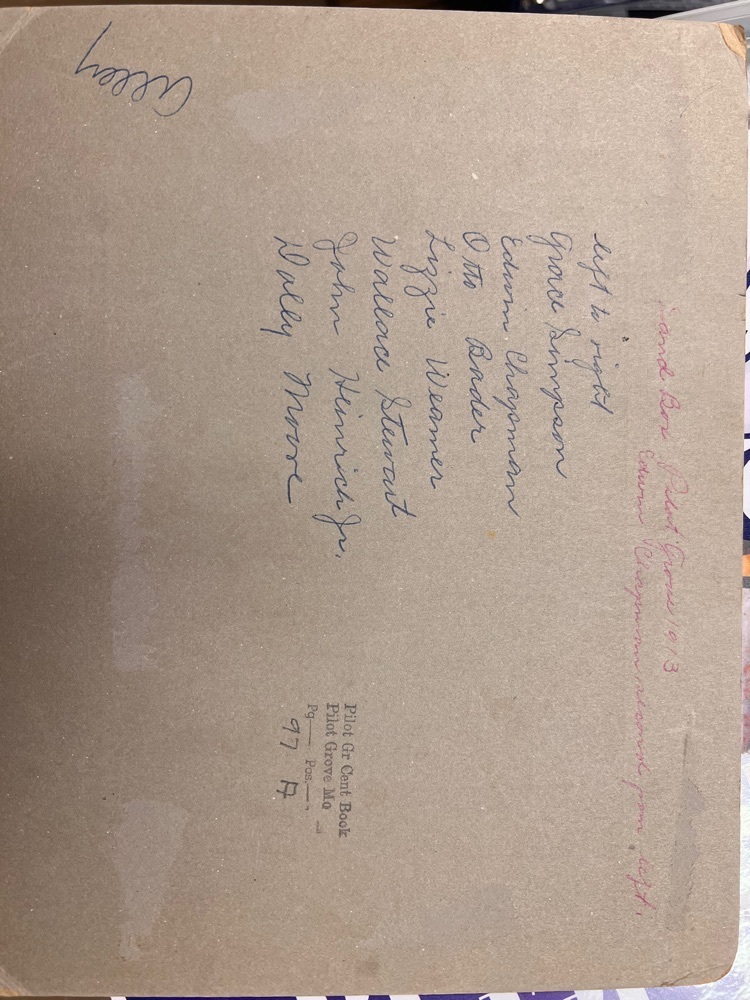 Sand Box, Pilot Grove 1913
Edwin Chapman, second from left.
left to right
Grace Simpson
Edwin Chapman
Otto Bader
Lizzie Weamer
Wallace Stewart
John Heinrich Jr.
Dolly Moore
Pilot Gr Cent Book
Pilot Grove Mo
Pg— Pos.—
97 A